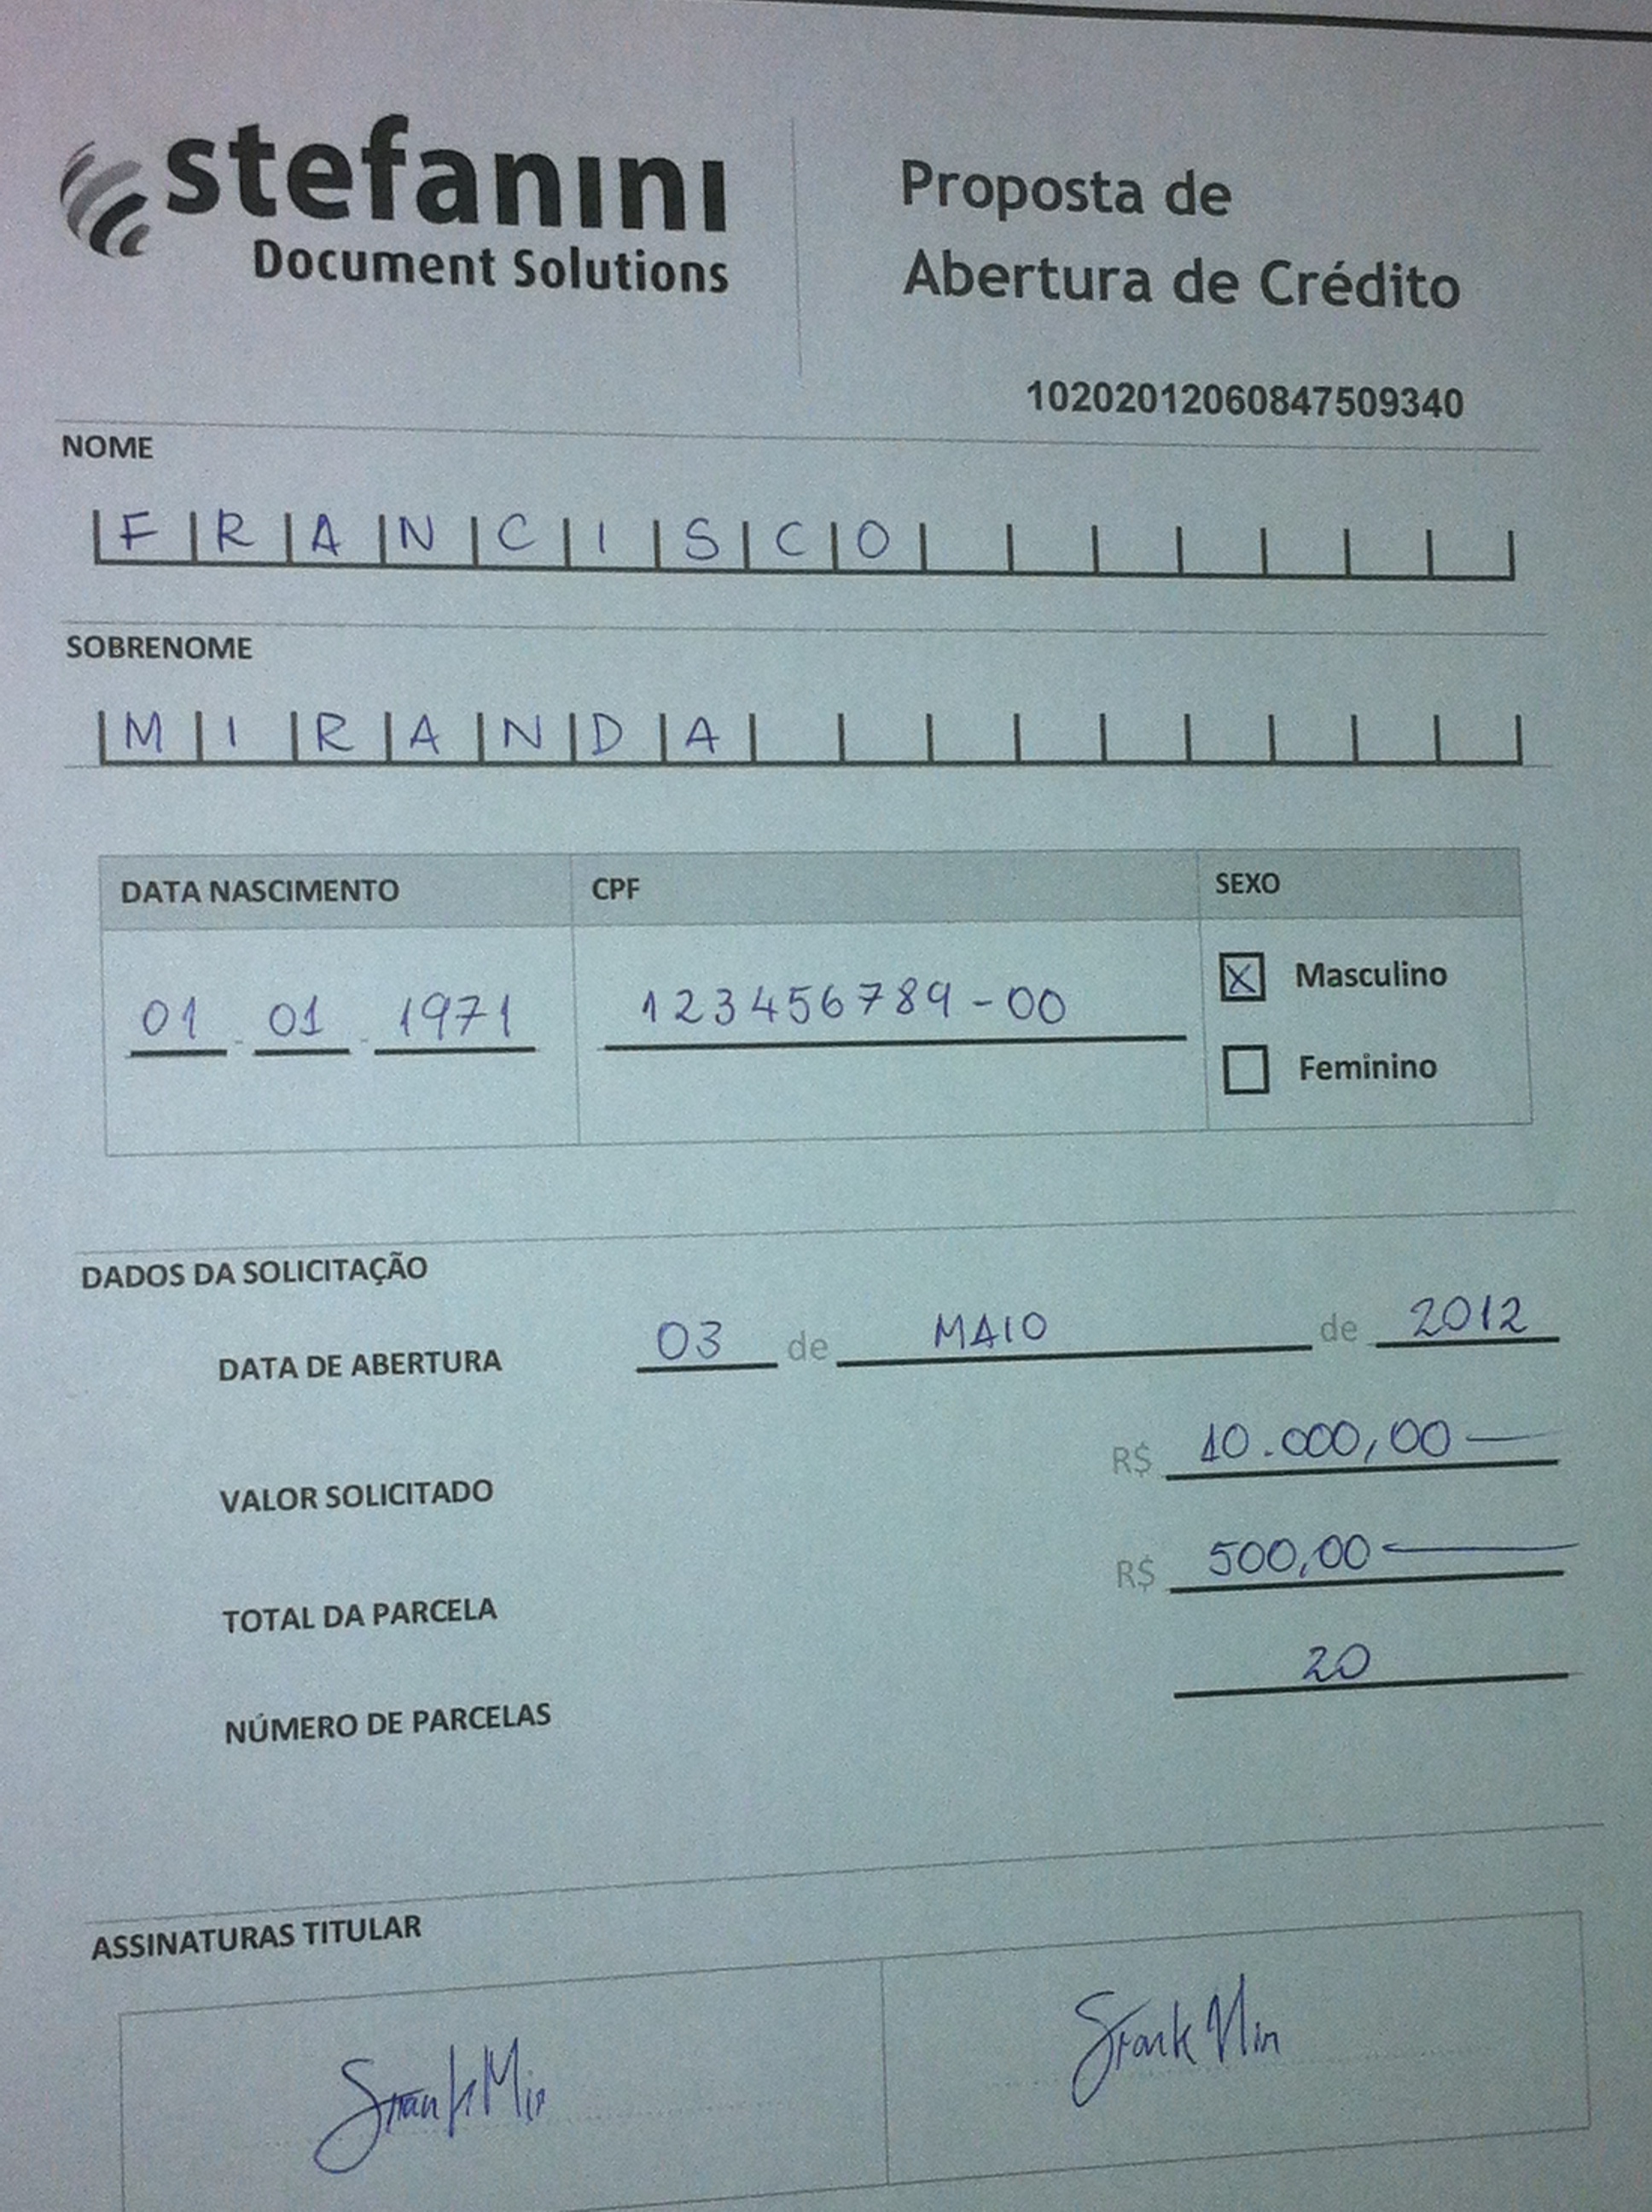 stefanini
Document Solutions
Proposta de
Abertura de Crédito
10202012060847509340
NOME
FRANCISCO
SOBRENOME
MIRANDA
DATA NASCIMENTO CPF SEXO
01 - 01 - 1971 123456789-00
X Masculino
Feminino
DADOS DA SOLICITAÇÃO
DATA DE ABERTURA 03 de MAIO de 2012
VALOR SOLICITADO R$ 10.000,00
TOTAL DA PARCELA R$ 500,00
NÚMERO DE PARCELAS 20
ASSINATURAS TITULAR